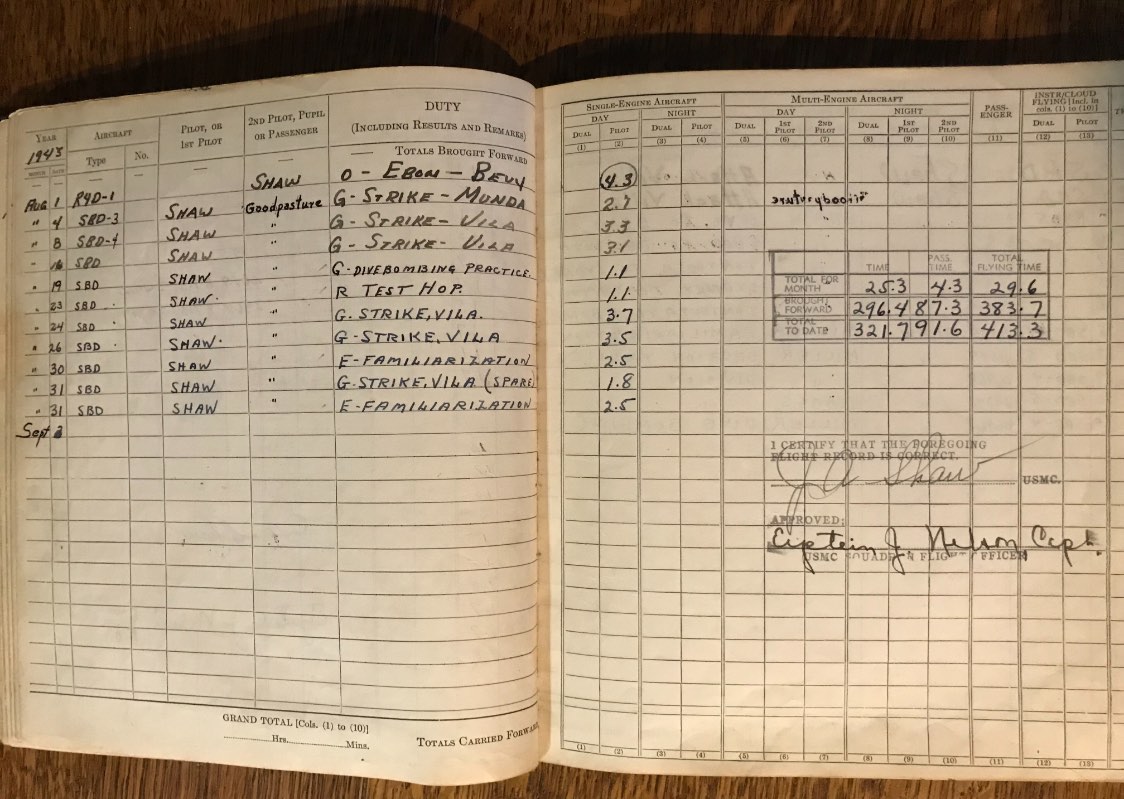 YEAR
1943
MONTH DATE
AIRCRAFT
Type No.
PILOT, OR
1ST PILOT
2ND PILOT, PUPIL
OR PASSENGER
DUTY
(INCLUDING RESULTS AND REMARKS)
TOTALS BROUGHT FORWARD
— — — — — —
Aug 1 R4D-1 SHAW O - EBON - BEVY
" 4 SBD-3 SHAW Goodpasture G - STRIKE - MUNDA
" 8 SBD-4 SHAW " G - STRIKE - VILA
" 16 SBD SHAW " G - STRIKE - VILA
" 19 SBD SHAW " G-DIVEBOMBING PRACTICE.
" 23 SBD SHAW " R TEST HOP.
" 24 SBD SHAW " G. STRIKE, VILA.
" 26 SBD SHAW " G-STRIKE, VILA
" 30 SBD SHAW " E-FAMILIARIZATION
" 31 SBD SHAW " G-STRIKE, VILA (SPARE)
" 31 SBD SHAW " E-FAMILIARIZATION
Sept
GRAND TOTAL [Cols. (1) to (10)]
Hrs. Mins.
TOTALS CARRIED FORWARD
SINGLE-ENGINE AIRCRAFT MULTI-ENGINE AIRCRAFT PASS-
ENGER INSTR/CLOUD
FLYING [Incl. in
cols. (1) to (10)]
DAY NIGHT DAY NIGHT
DUAL PILOT DUAL PILOT DUAL 1ST
PILOT 2ND
PILOT DUAL 1ST
PILOT 2ND
PILOT DUAL PILOT
(1) (2) (3) (4) (5) (6) (7) (8) (9) (10) (11) (12) (13)
4.3
2.7
3.3
3.1
1.1
1.1
3.7
3.5
2.5
1.8
2.5
TIME PASS. TIME TOTAL FLYING TIME
TOTAL FOR MONTH 25.3 4.3 29.6
BROUGHT FORWARD 296.4 87.3 383.7
TOTAL TO DATE 321.7 91.6 413.3
I CERTIFY THAT THE FOREGOING
FLIGHT RECORD IS CORRECT.
J A Shaw USMC.
APPROVED;
J. Nelson Capt.
USMC SQUADRON FLIGHT OFFICER
(1) (2) (3) (4) (5) (6) (7) (8) (9) (10) (11) (12) (13)